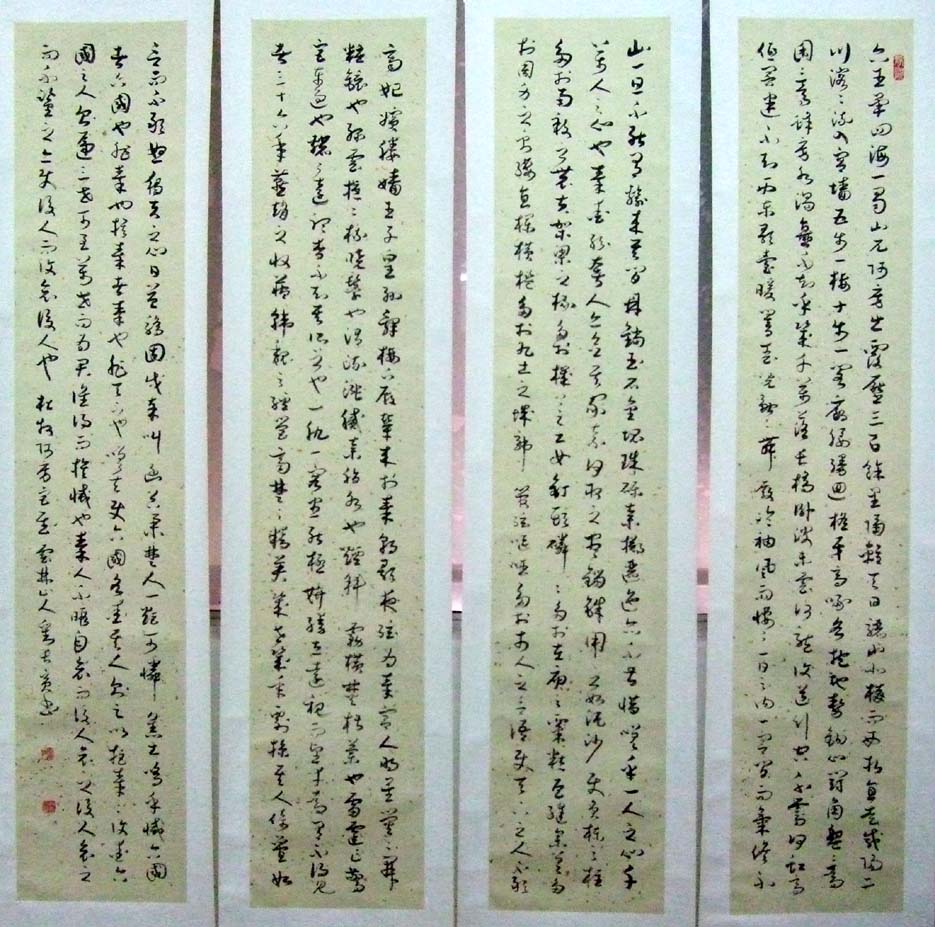 六王畢四海一蜀山兀阿房出覆壓三百餘里隔離天日驪山北構而西折直走咸陽二
川溶溶流入宮牆五步一樓十步一閣廊腰縵迴檐牙高啄各抱地勢鉤心鬥角盤盤焉
囷囷焉蜂房水渦矗不知乎幾千萬落長橋臥波未雲何龍復道行空不霽何虹高
低冥迷不知西東歌臺暖響春光融融舞殿冷袖風雨悽悽一日之內一宮之間而氣候不
齊妃嬪媵嬙王子皇孫辭樓下殿輦來於秦朝歌夜弦為秦宮人明星熒熒開
妝鏡也綠雲擾擾梳曉鬟也渭流漲膩棄脂水也煙斜霧橫焚椒蘭也雷霆乍驚
宮車過也轆轆遠聽杳不知其所之也一肌一容盡態極妍縵立遠視而望幸焉有不得見
者三十六年燕趙之收藏韓魏之經營齊楚之精英幾世幾年剽掠其人倚疊如
山一旦不能有輸來其間鼎鐺玉石金塊珠礫棄擲邐迤亦不甚惜嗟乎一人之心千
萬人之心也秦愛紛奢人亦念其家奈何取之盡錙銖用之如泥沙使負棟之柱
多於南畝之農夫架梁之椽多於機上之工女釘頭磷磷多於在庾之粟粒瓦縫參差多
於周身之帛縷直欄橫檻多於九土之城郭管弦嘔啞多於市人之言語使天下之人不敢
言而不敢怒獨夫之心日益驕固戍卒叫函谷舉楚人一炬可憐焦土嗚乎滅六國
者六國也非秦也族秦者秦也非天下也嗟夫使六國各愛其人則足以拒秦秦復愛六
國之人則遞三世可至萬世而為君誰得而族滅也秦人不暇自哀而後人哀之後人哀之
而不鑒之亦使後人而復哀後人也 杜牧阿房宮賦 雲林山人書